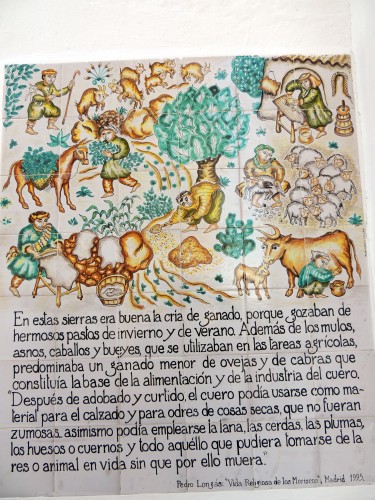 En estas sierras era buena la cría de ganado, porque gozaban de
hermosos pastos de invierno y de verano. Además de los mulos,
asnos, caballos y bueyes, que se utilizaban en las tareas agrícolas,
predominaba un ganado menor de ovejas y de cabras que
constituía la base de la alimentación y de la industria del cuero.
"Después de adobado y curtido, el cuero podía usarse como ma-
terial para el calzado y para odres de cosas secas, que no fueran
zumosas, asimismo podía emplearse la lana, las cerdas, las plumas,
los huesos o cuernos y todo aquéllo que pudiera tomarse de la
res o animal en vida sin que por ello muera."
Pedro Longás: "Vida Religiosa de los Moriscos", Madrid 1995